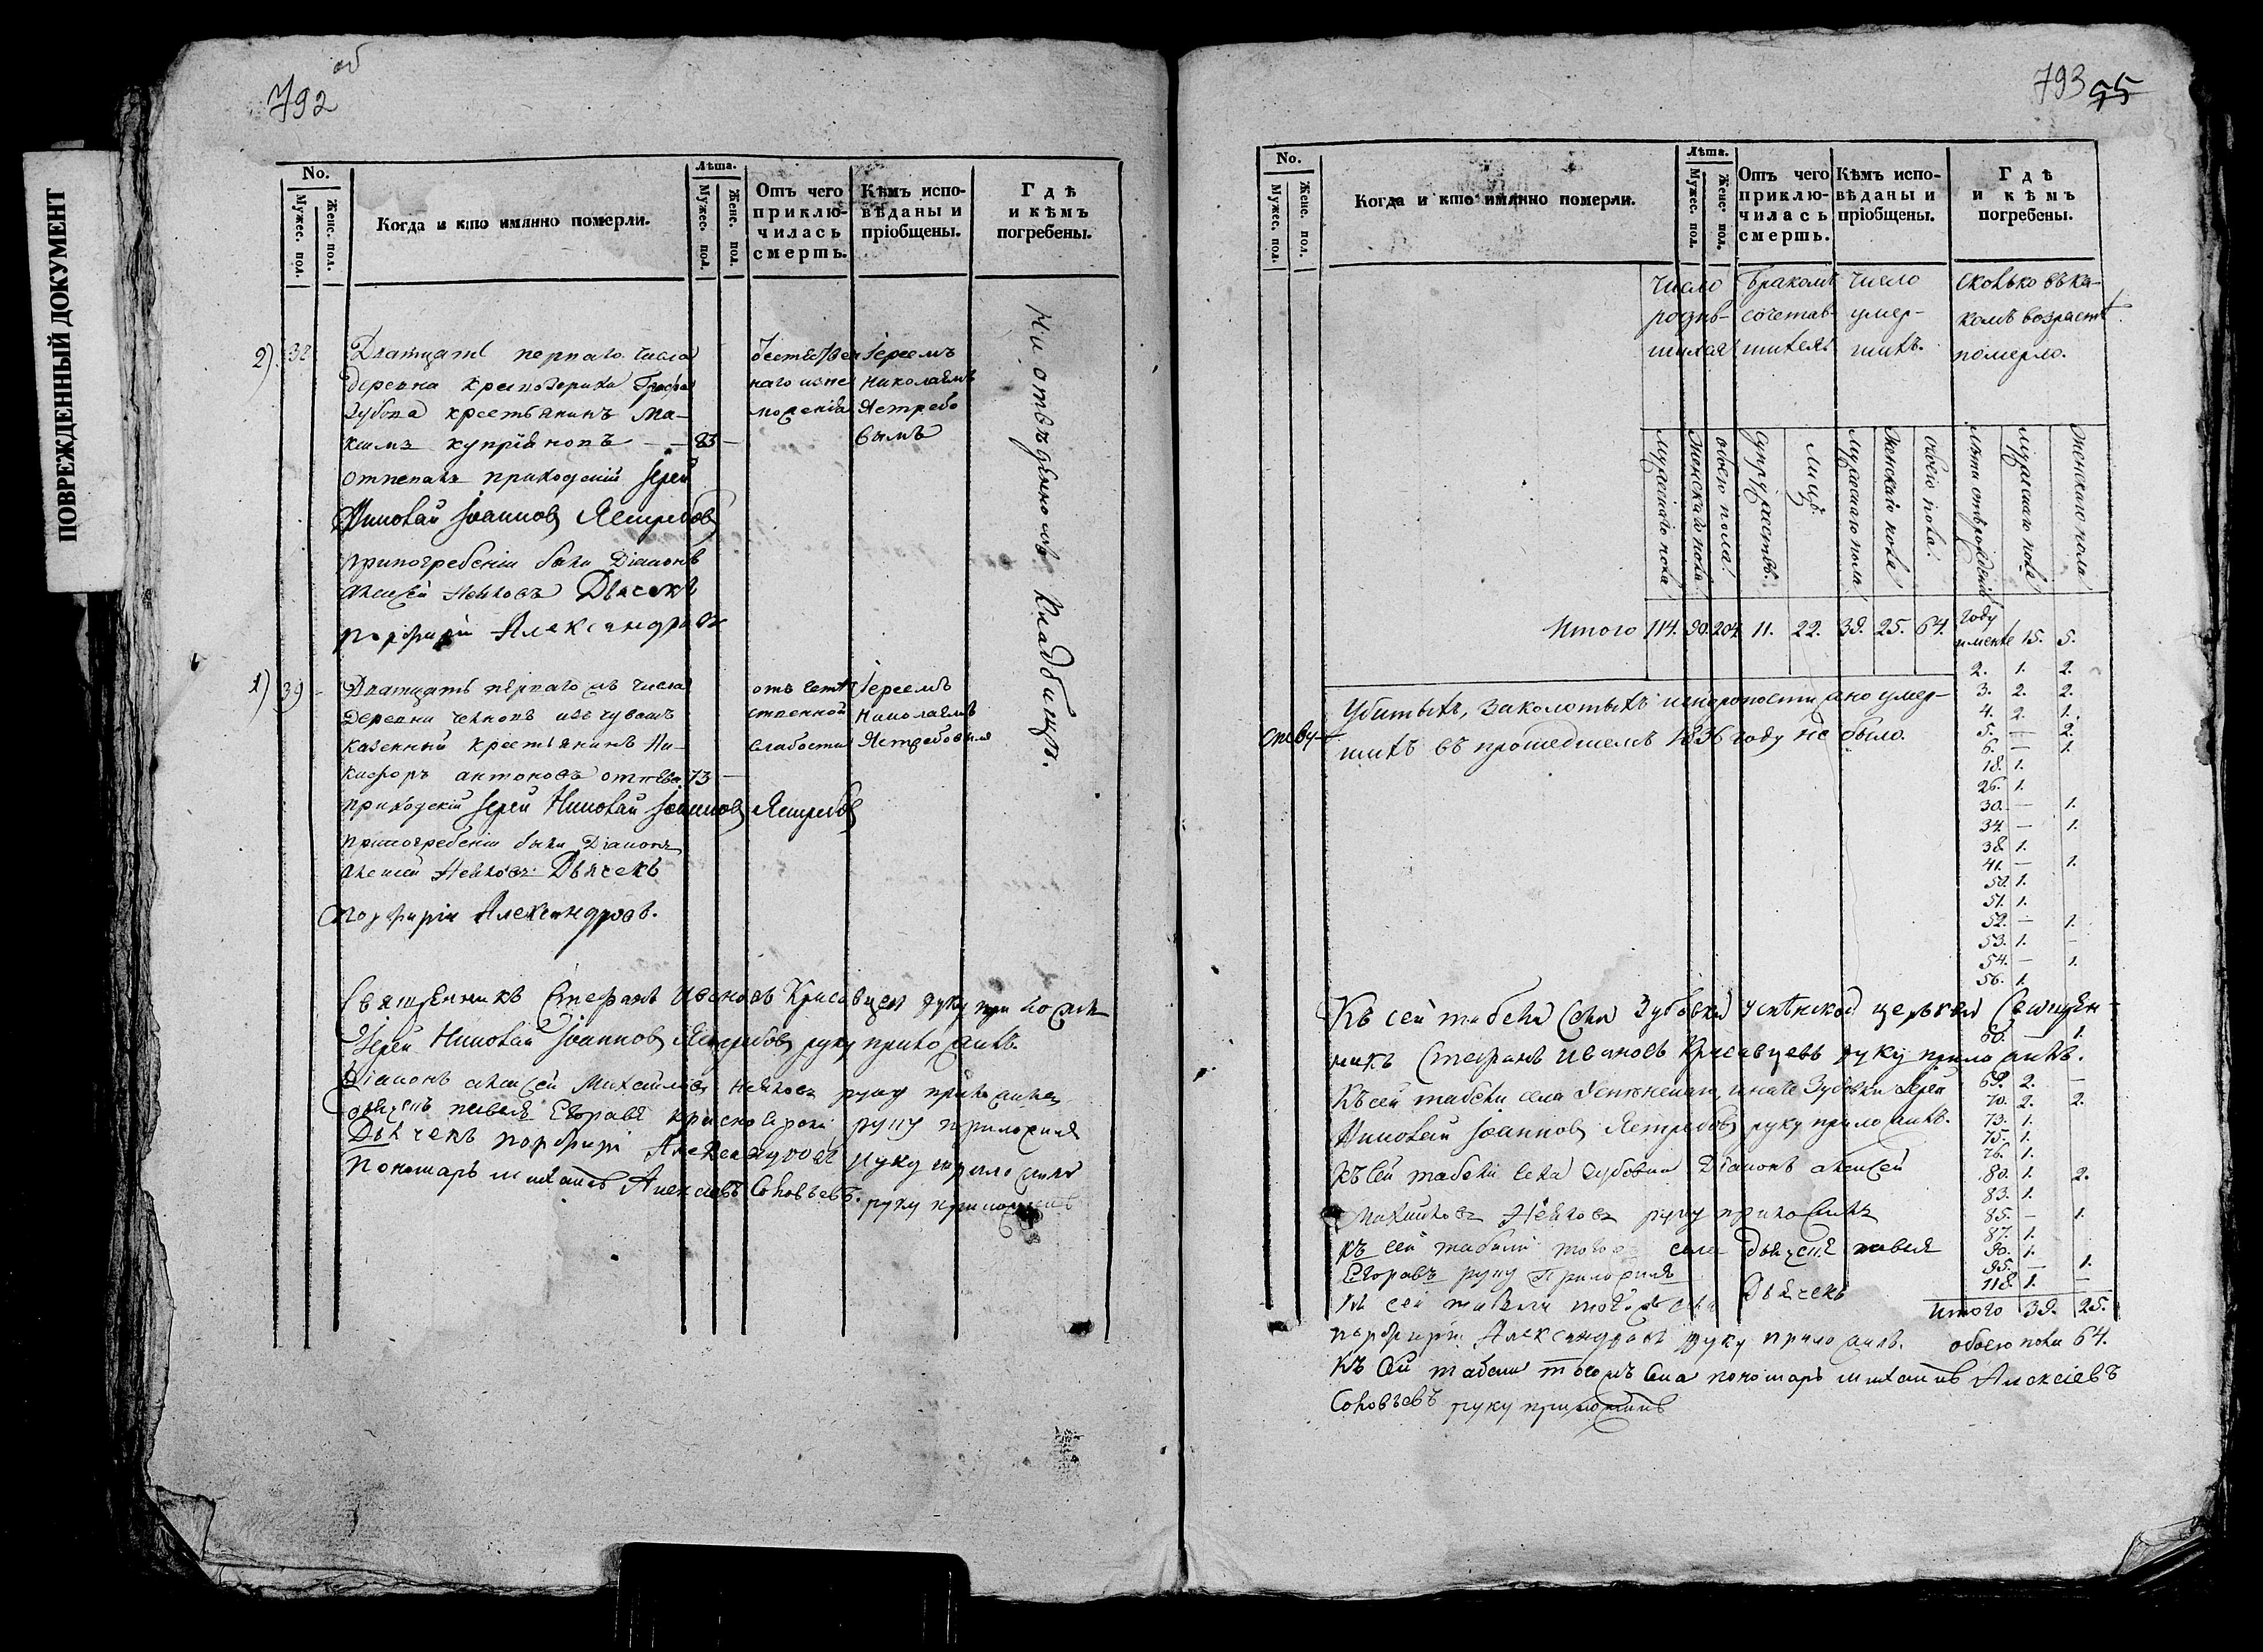 ПОВРЕЖДЕННЫЙ ДОКУМЕНТ
об
792
No.
Мужес. пол.
Женс. пол.
Когда и кто имянно померли.
Лѣта.
Мужес. пол.
Женс. пол.
Отъ чего приклю-чилась смерть.
Кѣмъ испо-вѣданы и пріобщены.
Гдѣ и кѣмъ погребены.
2) 38
Дватцать перваго числа
деревна Графа
Зубова крестьянинъ Ма-
ксимъ купріяновъ — 83 —
отпевалъ приходскій Іерей
Николай Іоанновъ Ястребовъ
припогребеніи были Діаконъ
алексей Дьячекъ
порфирій Александровъ
Іереемъ
Николаемъ
Ястребо
вымъ
На отведенномъ Кладбищѣ.
1) 39 —
Дватцать перваго числа
деревни изъ чувашъ
казенный крестьянинъ Ни-
кифоръ антоновъ отпева 73 —
приходскій Іерей Николай Іоанновъ Ястребовъ
припогребеніи были Діаконъ
алексей Дьячекъ
порфирій Александровъ.
отъ есте
ственной
слабости
Іереемъ
Николаемъ
Ястребовымъ
Священникъ Стефанъ Ивановъ Красавцевъ руку приложилъ
Іерей Николай Іоанновъ Ястребовъ руку приложилъ.
Діаконъ алексей Михайловъ руку приложилъ
дьячекъ павелъ Егоравъ руку приложилъ
Дьячекъ порфирій Александровъ руку приложилъ
Пономарь михаилъ Алексіевъ Соловьевъ руку приложилъ
793 55
No.
Мужес. пол.
Женс. пол.
Когда и кто имянно померли.
Лѣта.
Мужес. пол.
Женс. пол.
Отъ чего приклю-чилась смерть.
Кѣмъ испо-вѣданы и пріобщены.
Гдѣ и кѣмъ погребены.
Число родив-шихся
бракомъ сочетав-шихся
число умер-шихъ.
сколько въ ка-комъ возрастѣ померло.
мужескаго пола
Женскаго пола
обоего пола.
супружествъ.
лицъ.
мужескаго пола
женскаго пола
обоего пола.
лѣта отъ рожденія
мужескаго пола
женскаго пола
Итого 114. 90. 204. 11. 22. 39. 25. 64.
году и менѣе 15. 5.
2. 1. 2.
3. 2. 2.
4. 2. 1.
5. — 2.
6. — 1.
18. 1.
26. 1.
30. — 1.
34. — 1.
38. 1.
41. — 1.
50. 1.
51. 1.
52. — 1.
53. 1. —
54. — 1.
56. 1.
60. — 1.
69. 2. —
70. 2. 2.
73. 1.
75. 1.
76. 1.
80. 1. 2.
83. 1.
85. — 1.
87. 1.
90. 1.
95. — 1.
118. 1. —
Итого 39. 25.
обоего пола 64.
Убитыхъ, заколотыхъ умер-
шихъ въ прошедшемъ 1836 году не было.
Къ сей табели села Зубовки церкви Священ-
никъ Стефанъ Ивановъ Красавцевъ руку приложилъ.
Къ сей табели села иначе Зубовки Іерей
Николай Іоанновъ Ястребовъ руку приложилъ.
Къ сей табели села Зубовки Діаконъ алексей
Михайловъ руку приложилъ
къ сей табели тогожъ села дьячекъ павелъ
Егоравъ руку приложилъ
Къ сей табели тогожъ села Дьячекъ
порфирій Александровъ руку приложилъ.
Къ сей табели тогожъ села пономарь михаилъ Алексіевъ
Соловьевъ руку приложилъ